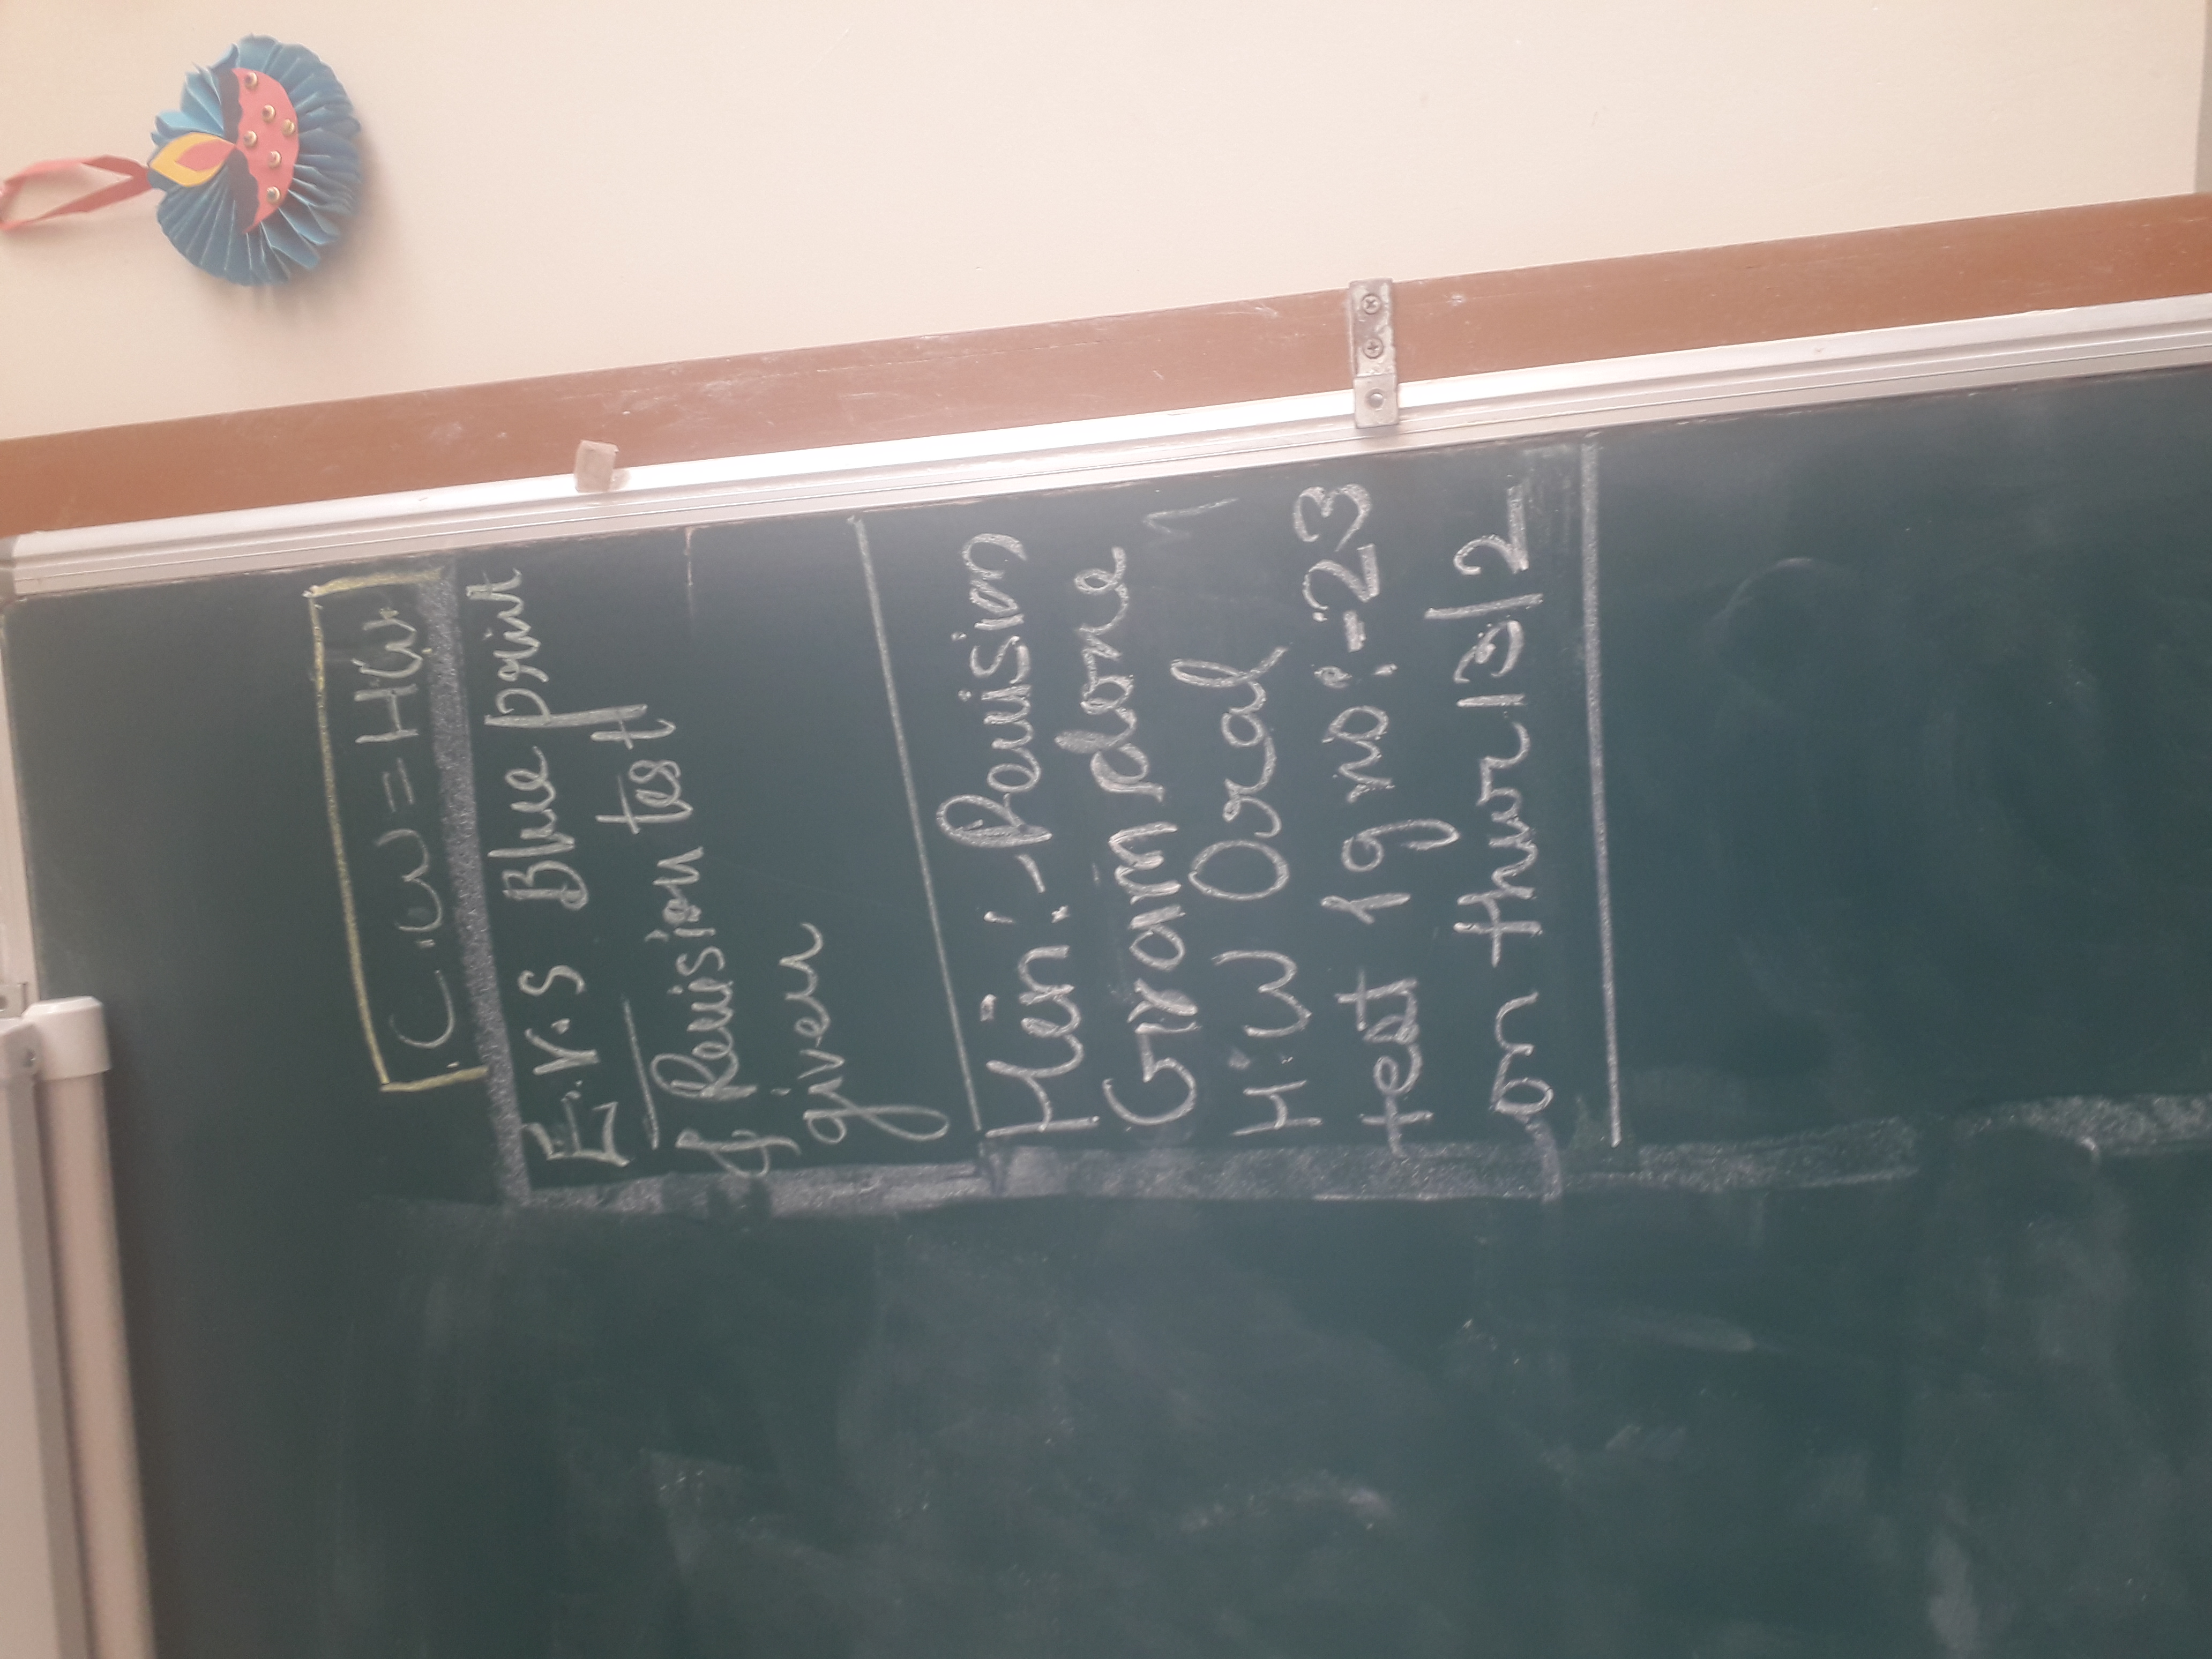 C.W = H.W.
E.V.S Blue print
& Revision test
given
Hin:- Revision
Gram done
H.W Oral
test pg no:-23
on thur 13/2